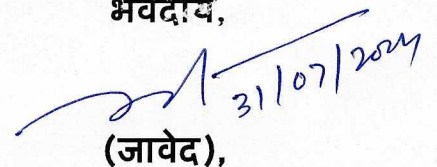 भवदीय,
31/07/2024
(जावेद),